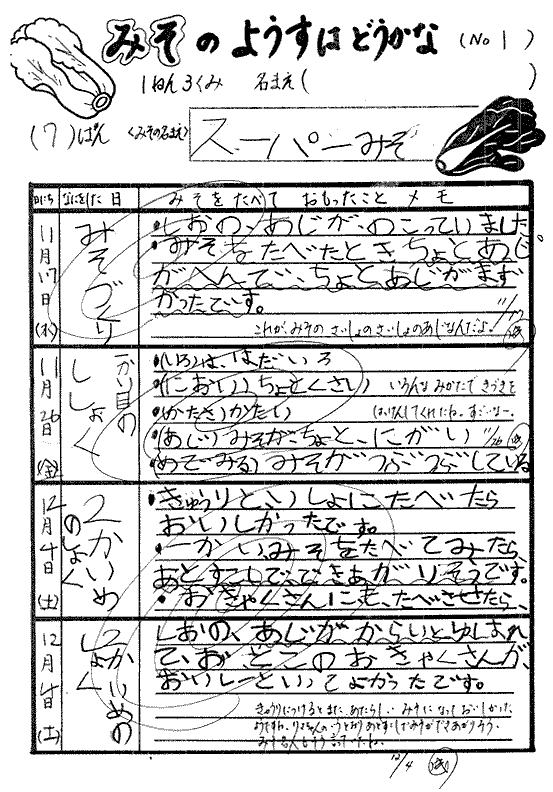 みそのようすはどうかな (No 1)
1ねん3くみ 名まえ( )
(7)ぱん <みその名まえ> スーパーみそ
なにをした 日 みそをたべて おもったこと メモ
11月17日(水)
みそづくり
・しおの、あじが、のこっていました。
・みそをたべたとき、ちょとあじ
がへんで、ちょとあじがまず
かったです。
これが、みその さいしょのさいしょのあじなんだよ。 11/17
11月26日(金)
ししょく
・(いろ)は、はだいろ
・(におい)ちょとくさい
いろんなみかたで きづきを
・(かたさ)かたい
はっけんしてくれたね。すごいなー。
・(あじ)みそが、ちょと、にがい 11/26
(めでみる)みそがつぶつぶしている
12月4日(土)
2かいめのししょく
・きゅうりと、いしょにたべたら
おいしかったです。
・一かいみそをたべてみたら、
あとすこしで、できあがりそうです。
・おきゃくさんにも、たべさせたら、
12月4日(土)
2かいめのししょく
しおの、あじがからいとゆしまれ
て、おとこのおきゃくさんが、
おいしーといってよかったです。
きゅうりにつけると また、あたらしい みそになって おいしかった
12/4